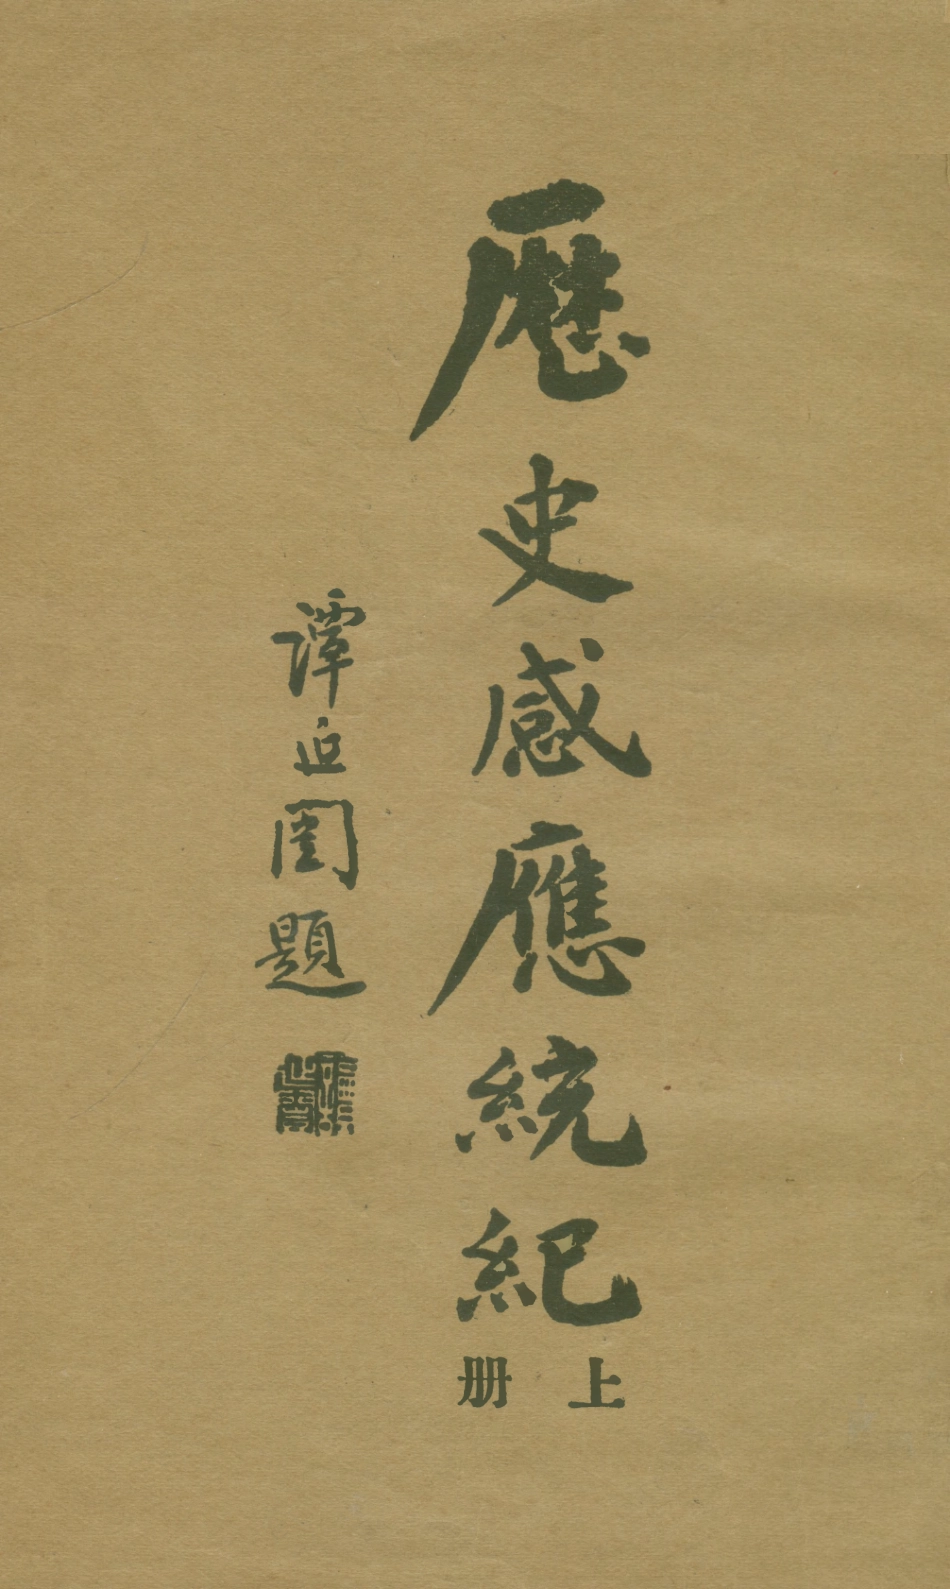 歷史感應統紀
上册
譚延闓題